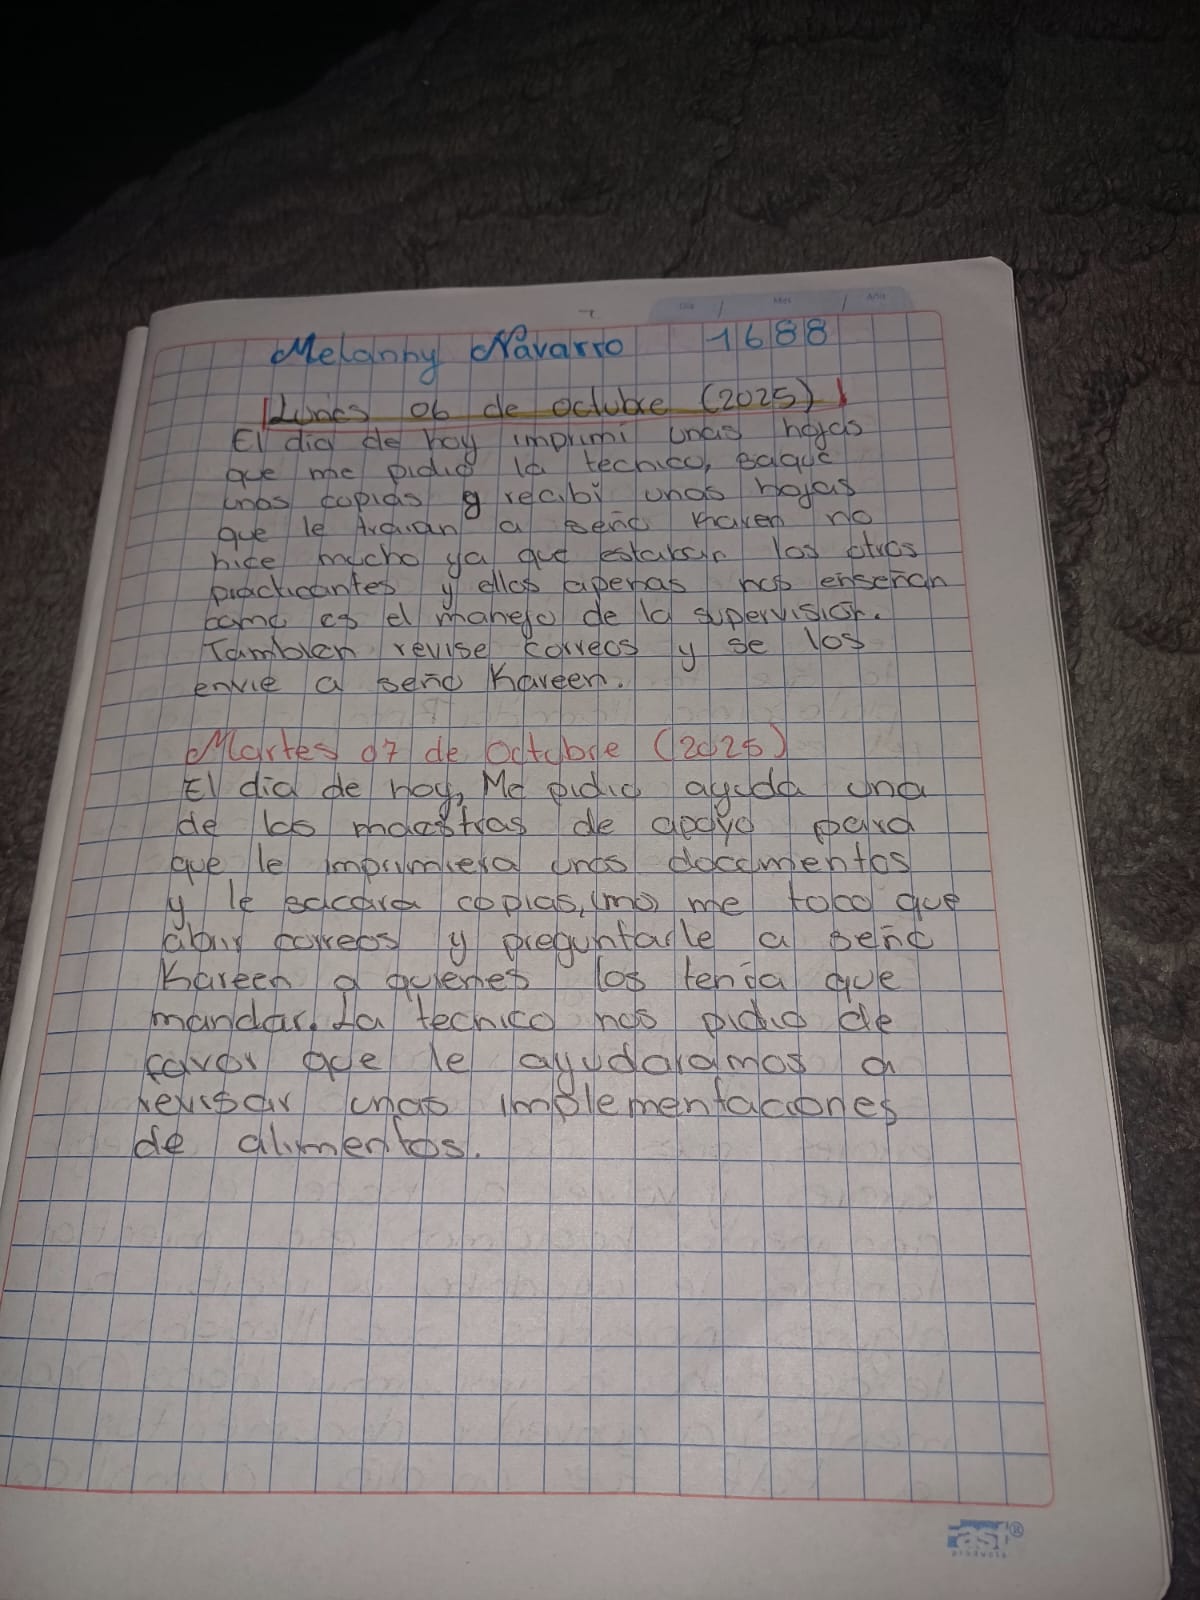 Día / Mes / Año
Melanny Navarro 1688
Lunes 06 de octubre (2025)
El dia de hoy imprimi unas hojas
que me pidio la tecnico, saque
unas copias y recibi unas hojas
que le traian a seño Kareen no
hice mucho ya que estaban los otros
practicantes y ellos apenas nos enseñan
como es el manejo de la supervision.
Tambien revise correos y se los
envie a seño Kareen.
Martes 07 de Octubre (2025)
El dia de hoy, Me pidio ayuda una
de las maestras de apoyo para
que le imprimiera unos documentos
y le sacara copias, me toco que
abrir correos y preguntarle a seño
Kareen a quienes los tenia que
mandar. La tecnico nos pidio de
favor que le ayudaramos a
revisar unas implementaciones
de alimentos.
Fast®
products